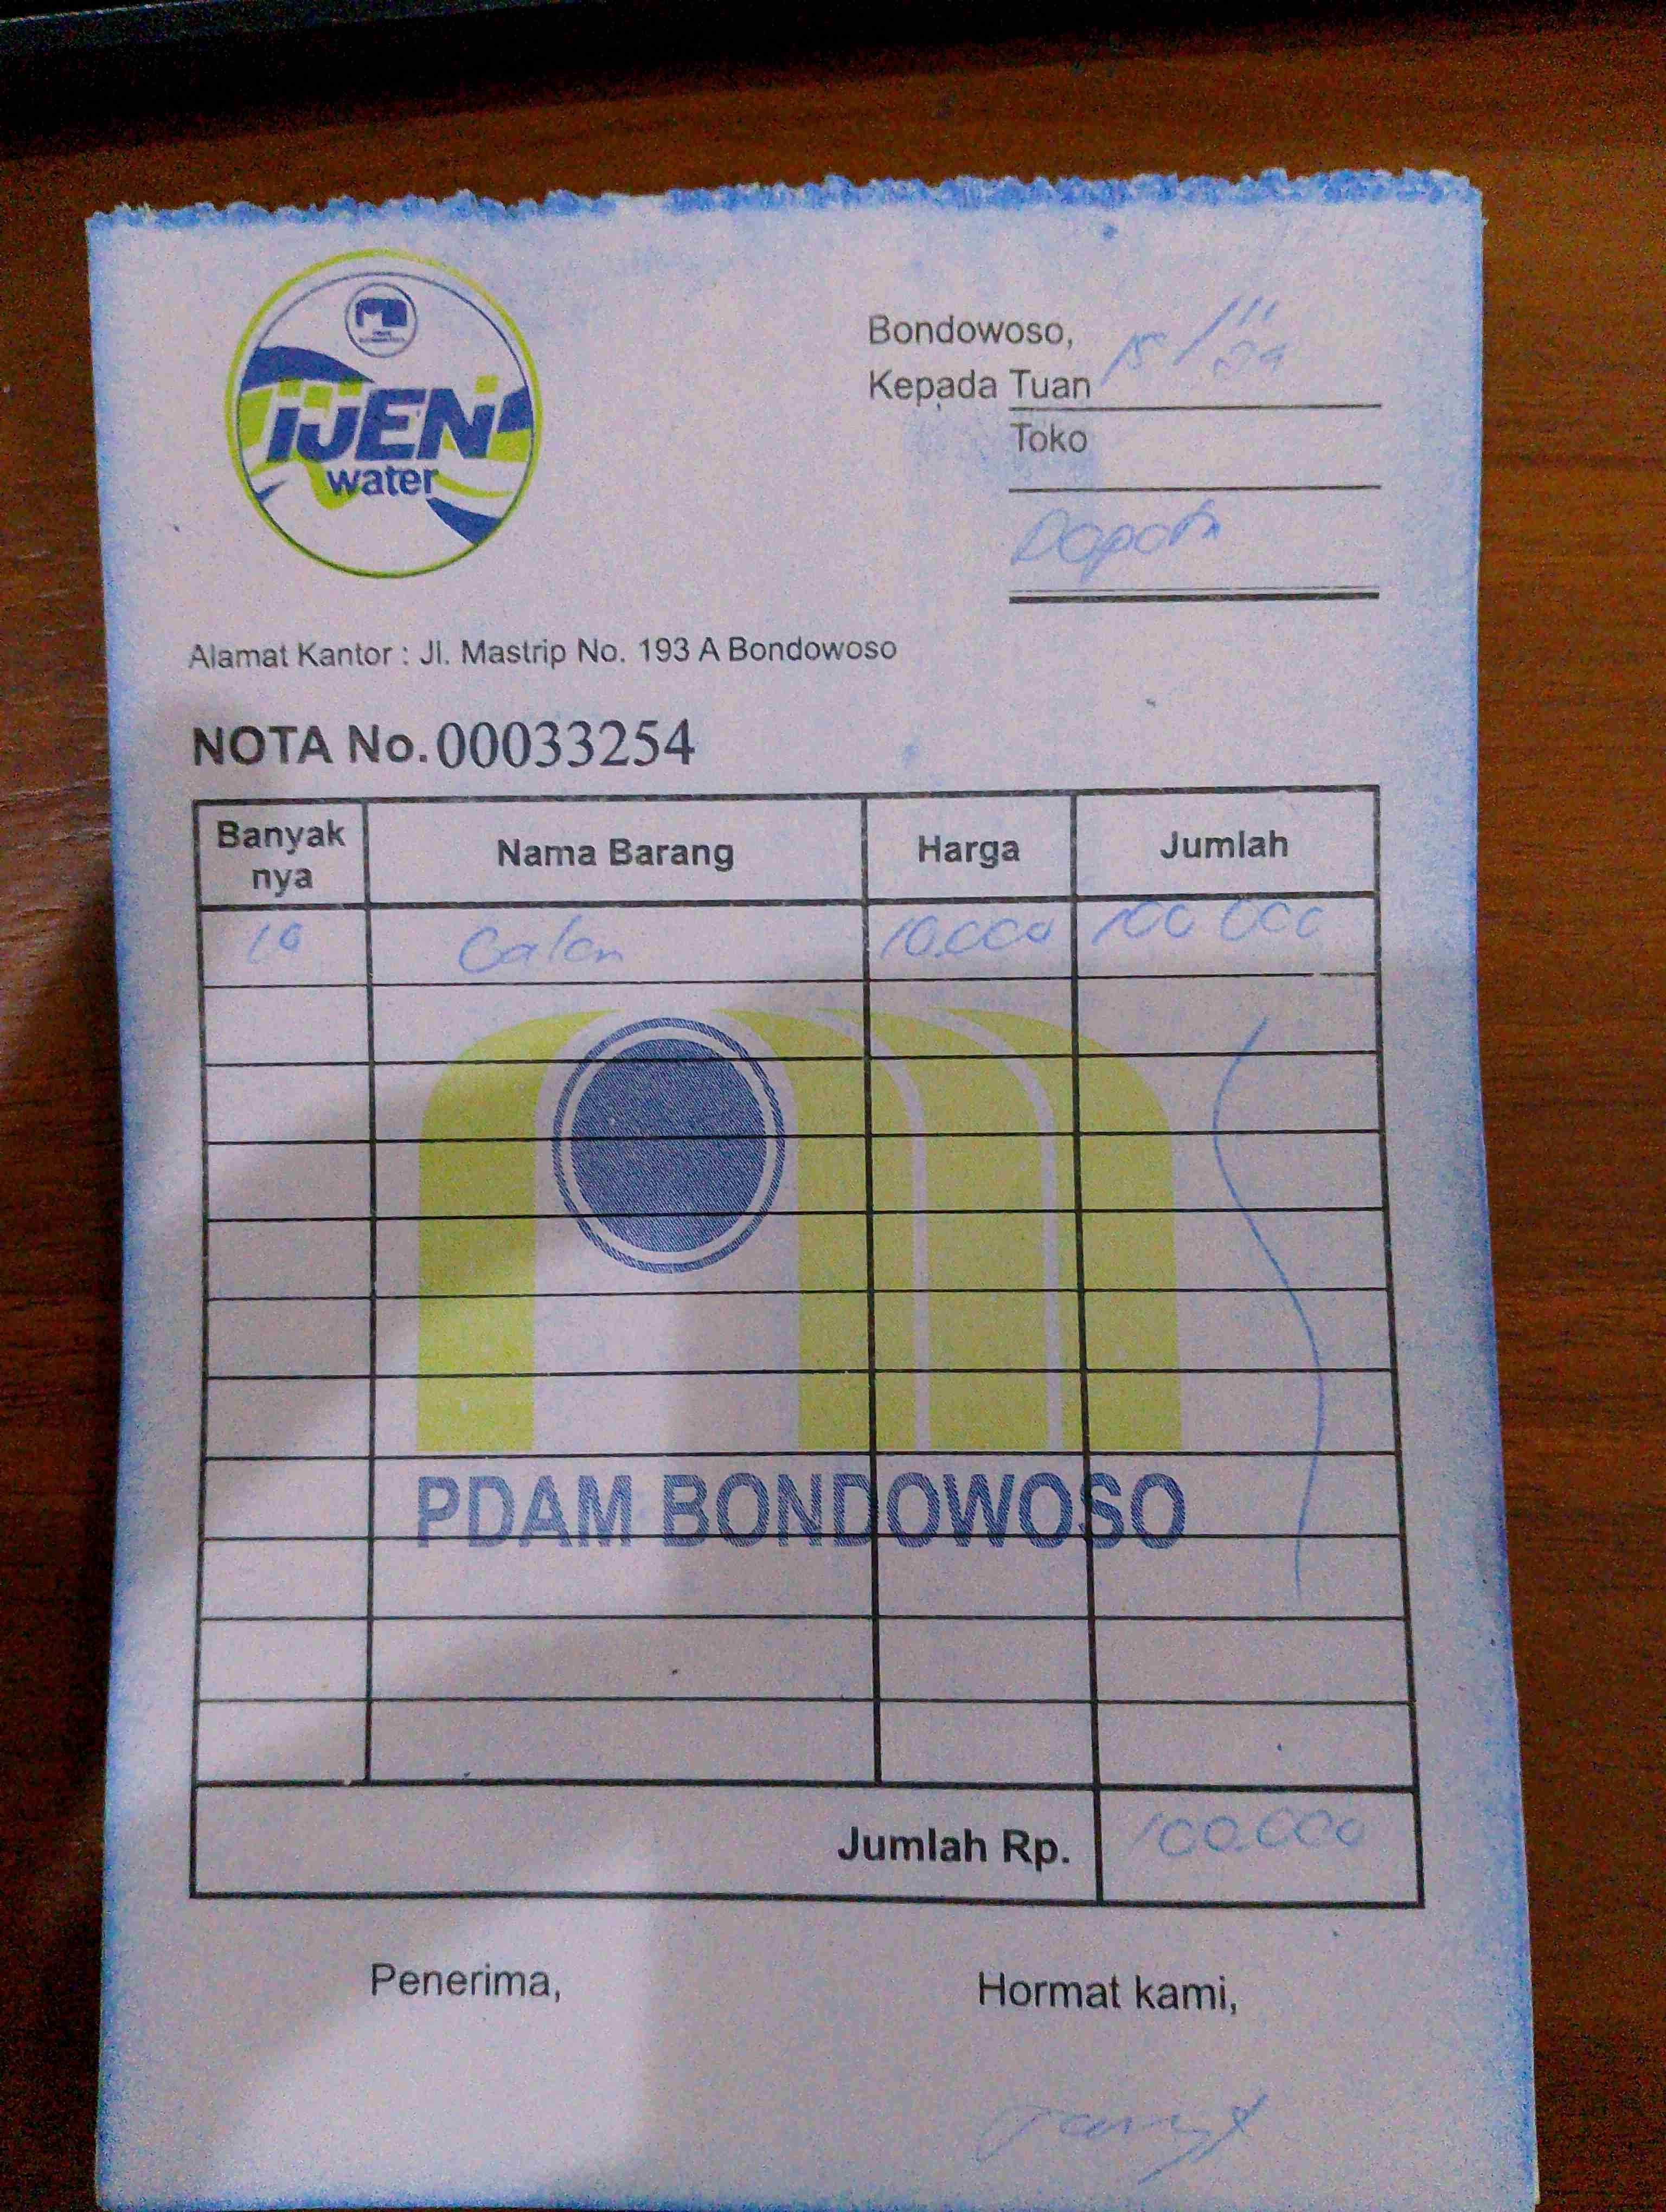 IJEN
water
Bondowoso, 15 / 11
24
Kepada Tuan
Toko
Alamat Kantor : Jl. Mastrip No. 193 A Bondowoso
NOTA No. 00033254
Banyak nya Nama Barang Harga Jumlah
10 Galon 10.000 100 000
PDAM BONDOWOSO
Jumlah Rp. 100.000
Penerima, Hormat kami,